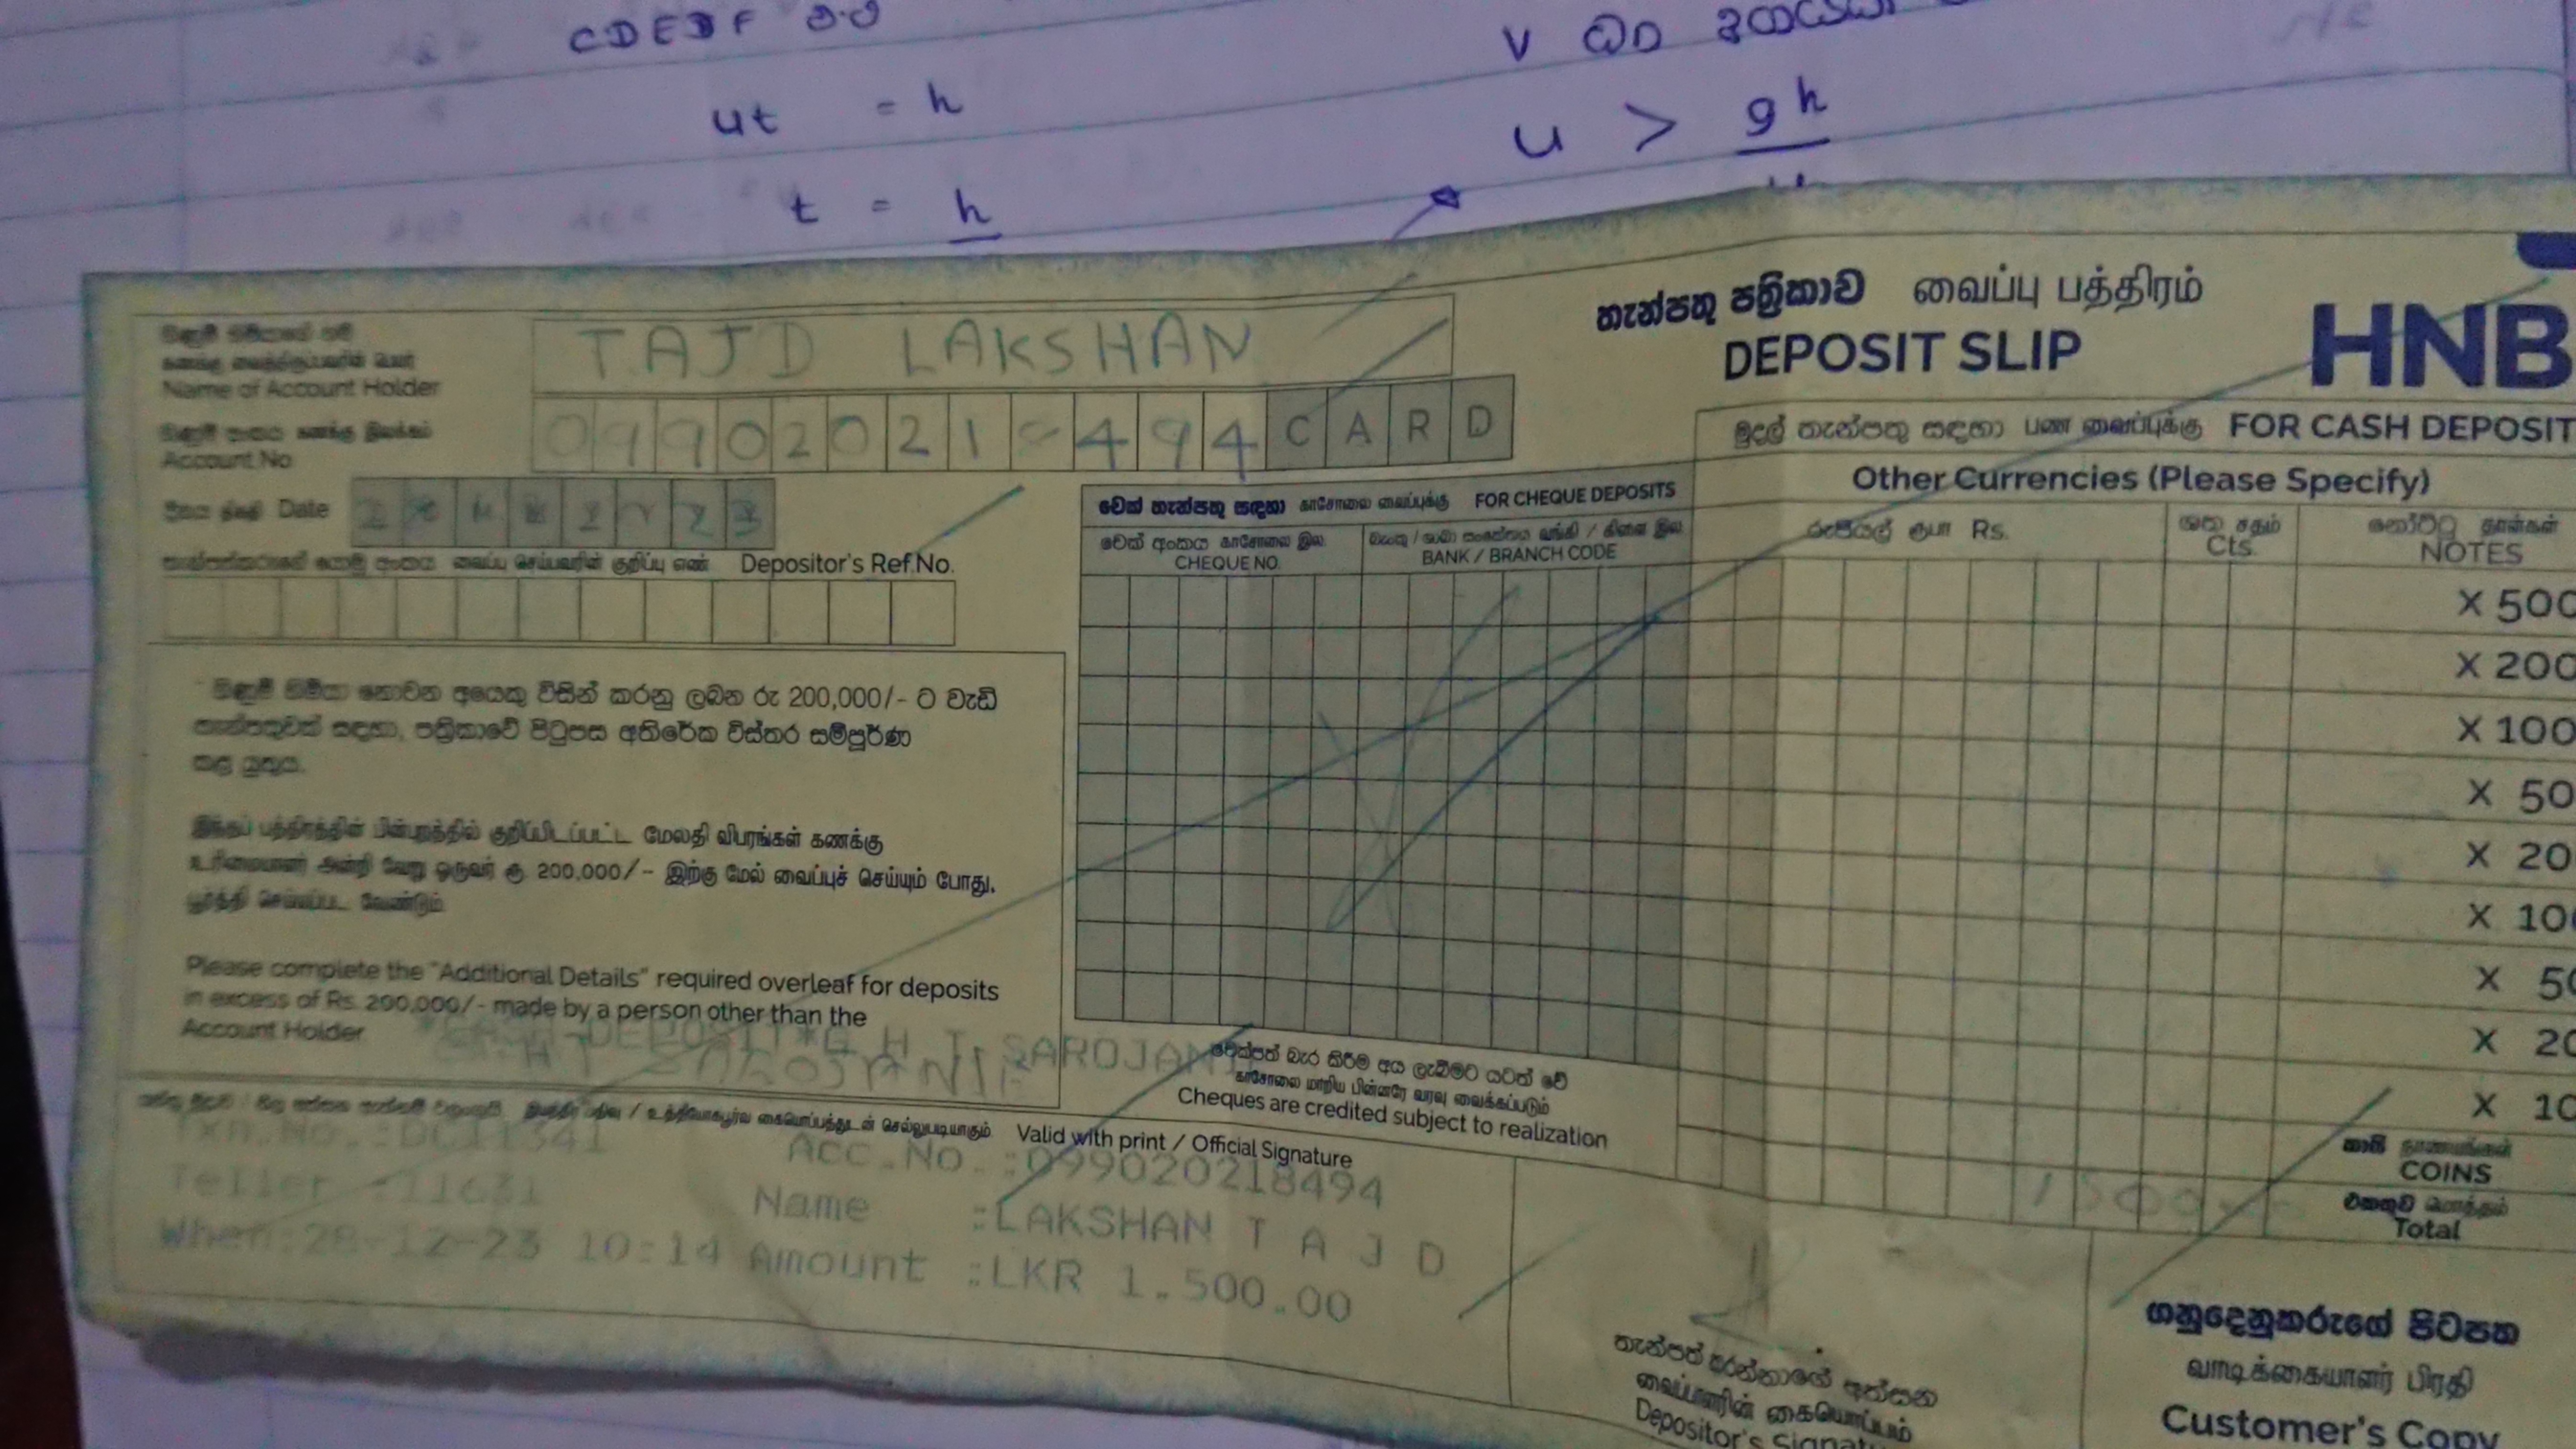 CDEBF
ut = h
t = h
V
u > gh
තැන්පතු පත්‍රිකාව வைப்பு பத்திரம்
DEPOSIT SLIP
HNB
Name of Account Holder
TAJD LAKSHAN
Account No
09902021 494 CARD
Date
Depositor's Ref.No.
මුදල් තැන්පතු සඳහා பண வைப்புக்கு FOR CASH DEPOSIT
Other Currencies (Please Specify)
රුපියල් ரூபா Rs.
ශත சதம் Cts.
නෝට්ටු தாள்கள் NOTES
චෙක් තැන්පතු සඳහා காசோலை வைப்புக்கு FOR CHEQUE DEPOSITS
චෙක් අංකය காசோலை இல.
CHEQUE NO.
BANK / BRANCH CODE
X 500
X 200
X 100
X 50
X 20
X 10
X 50
X 20
X 10
COINS
1500
එකතුව மொத்தம்
Total
ගිණුම් හිමියා නොවන අයෙකු විසින් කරනු ලබන රු 200,000/- ට වැඩි
තැන්පතුවක් සඳහා, පත්‍රිකාවේ පිටුපස අතිරේක විස්තර සම්පූර්ණ
කළ යුතුය.
இந்தப் பத்திரத்தின் பின்புறத்தில் குறிப்பிடப்பட்ட மேலதி விபரங்கள் கணக்கு
உரிமையாளர் அன்றி வேறு ஒருவர் ரூ 200,000/- இற்கு மேல் வைப்புச் செய்யும் போது,
பூர்த்தி செய்யப்பட வேண்டும்.
Please complete the "Additional Details" required overleaf for deposits
in excess of Rs. 200,000/- made by a person other than the
Account Holder
DEPOSIT*G H T SAROJANI
H T SAROJANI
චෙක්පත් බැර කිරීම අය ලැබීමට යටත් වේ
காசோலை மாறிய பின்னரே வரவு வைக்கப்படும்
Cheques are credited subject to realization
Valid with print / Official Signature
Txn.No.:DC11341 Acc.No.:099020218494
Teller :11631 Name :LAKSHAN T A J D
When:28-12-23 10:14 Amount :LKR 1,500.00
තැන්පත් කරන්නාගේ අත්සන
வைப்பாளரின் கையொப்பம்
Depositor's
ගනුදෙනුකරුගේ පිටපත
வாடிக்கையாளர் பிரதி
Customer's Copy